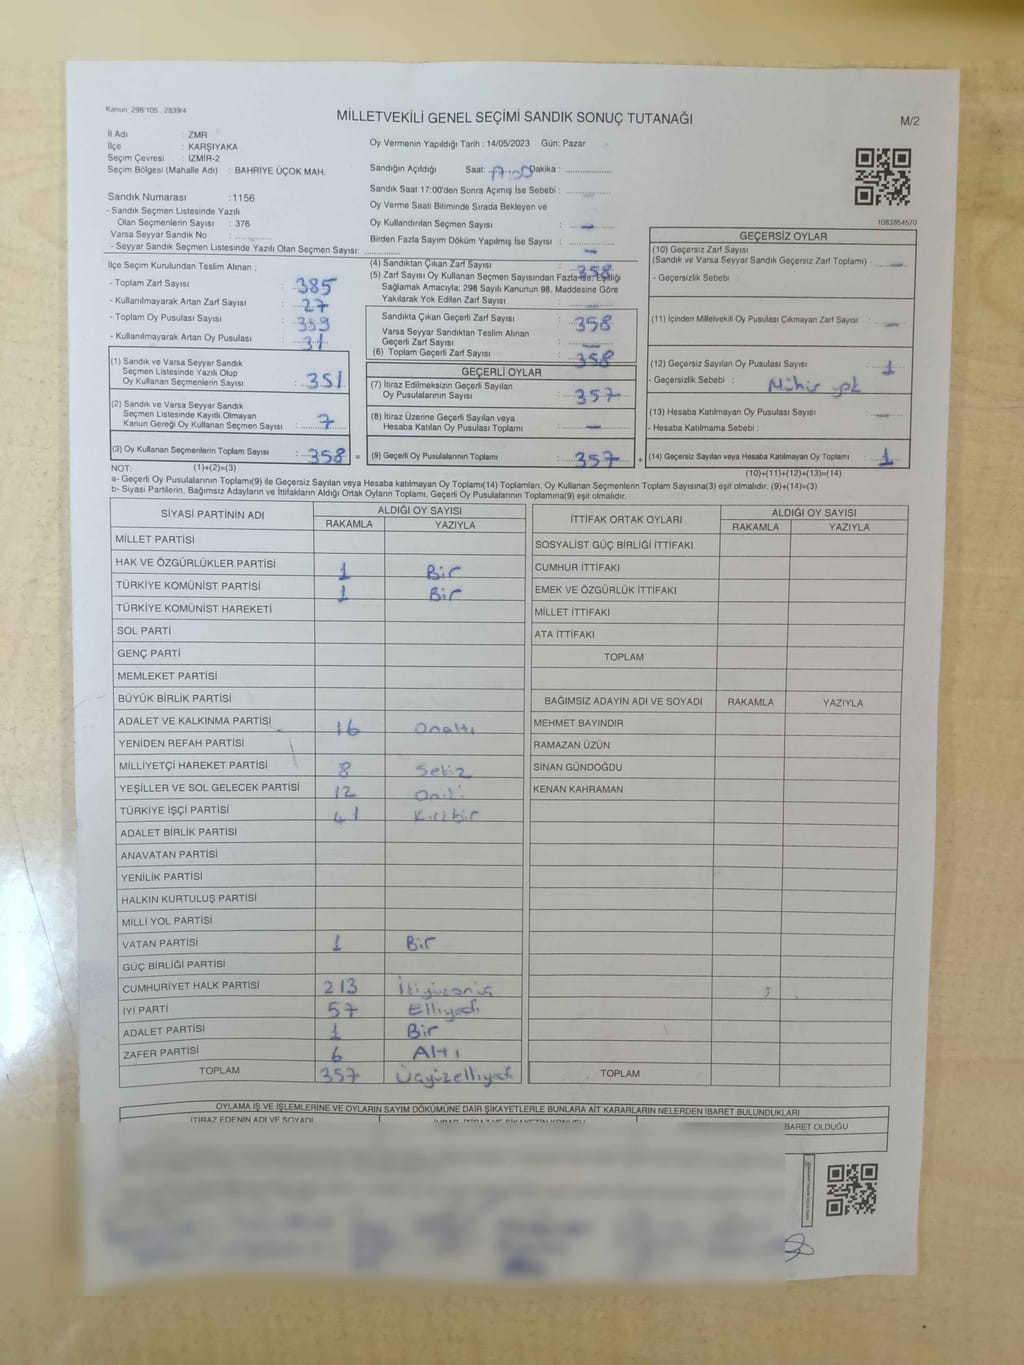 Kanun, 298/105 , 2839/4
MİLLETVEKİLİ GENEL SEÇİMİ SANDIK SONUÇ TUTANAĞI
M/2
İl Adı : ZMR
İlçe : KARŞIYAKA
Seçim Çevresi : İZMİR-2
Seçim Bölgesi (Mahalle Adı) : BAHRİYE ÜÇOK MAH.
Sandık Numarası :1156
- Sandık Seçmen Listesinde Yazılı
Olan Seçmenlerin Sayısı : 376
Varsa Seyyar Sandık No :
- Seyyar Sandık Seçmen Listesinde Yazılı Olan Seçmen Sayısı:
Oy Vermenin Yapıldığı Tarih : 14/05/2023 Gün: Pazar
Sandığın Açıldığı Saat: Dakika :
Sandık Saat 17:00'den Sonra Açımış İse Sebebi :
Oy Verme Saati Bitiminde Sırada Bekleyen ve
Oy Kullandırılan Seçmen Sayısı : -
Birden Fazla Sayım Döküm Yapılmış İse Sayısı : -
1083864570
İlçe Seçim Kurulundan Teslim Alınan :
- Toplam Zarf Sayısı : 385
- Kullanılmayarak Artan Zarf Sayısı : 27
- Toplam Oy Pusulası Sayısı : 389
- Kullanılmayarak Artan Oy Pusulası : 31
(1) Sandık ve Varsa Seyyar Sandık
Seçmen Listesinde Yazılı Olup
Oy Kullanan Seçmenlerin Sayısı : 351
(2) Sandık ve Varsa Seyyar Sandık
Seçmen Listesinde Kayıtlı Olmayan
Kanun Gereği Oy Kullanan Seçmen Sayısı : 7
(3) Oy Kullanan Seçmenlerin Toplam Sayısı : 358 =
(4) Sandıktan Çıkan Zarf Sayısı : 358
(5) Zarf Sayısı Oy Kullanan Seçmen Sayısından Fazla İse, Eşitliği
Sağlamak Amacıyla; 298 Sayılı Kanunun 98. Maddesine Göre
Yakılarak Yok Edilen Zarf Sayısı :
Sandıkta Çıkan Geçerli Zarf Sayısı : 358
Varsa Seyyar Sandıktan Teslim Alınan
Geçerli Zarf Sayısı : -
(6) Toplam Geçerli Zarf Sayısı : 358
GEÇERLİ OYLAR
(7) İtiraz Edilmeksizin Geçerli Sayılan
Oy Pusulalarının Sayısı : 357
(8) İtiraz Üzerine Geçerli Sayılan veya
Hesaba Katılan Oy Pusulası Toplamı : -
(9) Geçerli Oy Pusulalarının Toplamı : 357 +
GEÇERSİZ OYLAR
(10) Geçersiz Zarf Sayısı
(Sandık ve Varsa Seyyar Sandık Geçersiz Zarf Toplamı) : -
- Geçersizlik Sebebi :
(11) İçinden Milletvekili Oy Pusulası Çıkmayan Zarf Sayısı : -
(12) Geçersiz Sayılan Oy Pusulası Sayısı : 1
- Geçersizlik Sebebi : Mühür yok
(13) Hesaba Katılmayan Oy Pusulası Sayısı : -
- Hesaba Katılmama Sebebi :
(14) Geçersiz Sayılan veya Hesaba Katılmayan Oy Toplamı : 1
NOT: (1)+(2)=(3)
(10)+(11)+(12)+(13)=(14)
a- Geçerli Oy Pusulalarının Toplamı(9) ile Geçersiz Sayılan veya Hesaba katılmayan Oy Toplamı(14) Toplamları, Oy Kullanan Seçmenlerin Toplam Sayısına(3) eşit olmalıdır. (9)+(14)=(3)
b- Siyasi Partilerin, Bağımsız Adayların ve İttifakların Aldığı Ortak Oyların Toplamı, Geçerli Oy Pusulalarının Toplamına(9) eşit olmalıdır.
SİYASİ PARTİNİN ADI ALDIĞI OY SAYISI
RAKAMLA YAZIYLA
MİLLET PARTİSİ
HAK VE ÖZGÜRLÜKLER PARTİSİ 1 Bir
TÜRKİYE KOMÜNİST PARTİSİ 1 Bir
TÜRKİYE KOMÜNİST HAREKETİ
SOL PARTİ
GENÇ PARTİ
MEMLEKET PARTİSİ
BÜYÜK BİRLİK PARTİSİ
ADALET VE KALKINMA PARTİSİ 16 Onaltı
YENİDEN REFAH PARTİSİ
MİLLİYETÇİ HAREKET PARTİSİ 8 Sekiz
YEŞİLLER VE SOL GELECEK PARTİSİ 12 Oniki
TÜRKİYE İŞÇİ PARTİSİ 41 Kırkbir
ADALET BİRLİK PARTİSİ
ANAVATAN PARTİSİ
YENİLİK PARTİSİ
HALKIN KURTULUŞ PARTİSİ
MİLLİ YOL PARTİSİ
VATAN PARTİSİ 1 Bir
GÜÇ BİRLİĞİ PARTİSİ
CUMHURİYET HALK PARTİSİ 213 İkiyüzonüç
İYİ PARTİ 57 Elliyedi
ADALET PARTİSİ 1 Bir
ZAFER PARTİSİ 6 Altı
TOPLAM 357 Üçyüzelliyedi
İTTİFAK ORTAK OYLARI ALDIĞI OY SAYISI
RAKAMLA YAZIYLA
SOSYALİST GÜÇ BİRLİĞİ İTTİFAKI
CUMHUR İTTİFAKI
EMEK VE ÖZGÜRLÜK İTTİFAKI
MİLLET İTTİFAKI
ATA İTTİFAKI
TOPLAM
BAĞIMSIZ ADAYIN ADI VE SOYADI RAKAMLA YAZIYLA
MEHMET BAYINDIR
RAMAZAN ÜZÜN
SİNAN GÜNDOĞDU
KENAN KAHRAMAN
TOPLAM
OYLAMA İŞ VE İŞLEMLERİNE VE OYLARIN SAYIM DÖKÜMÜNE DAİR ŞİKAYETLERLE BUNLARA AİT KARARLARIN NELERDEN İBARET BULUNDUKLARI
İTİRAZ EDENİN ADI VE SOYADI
BARET OLDUĞU